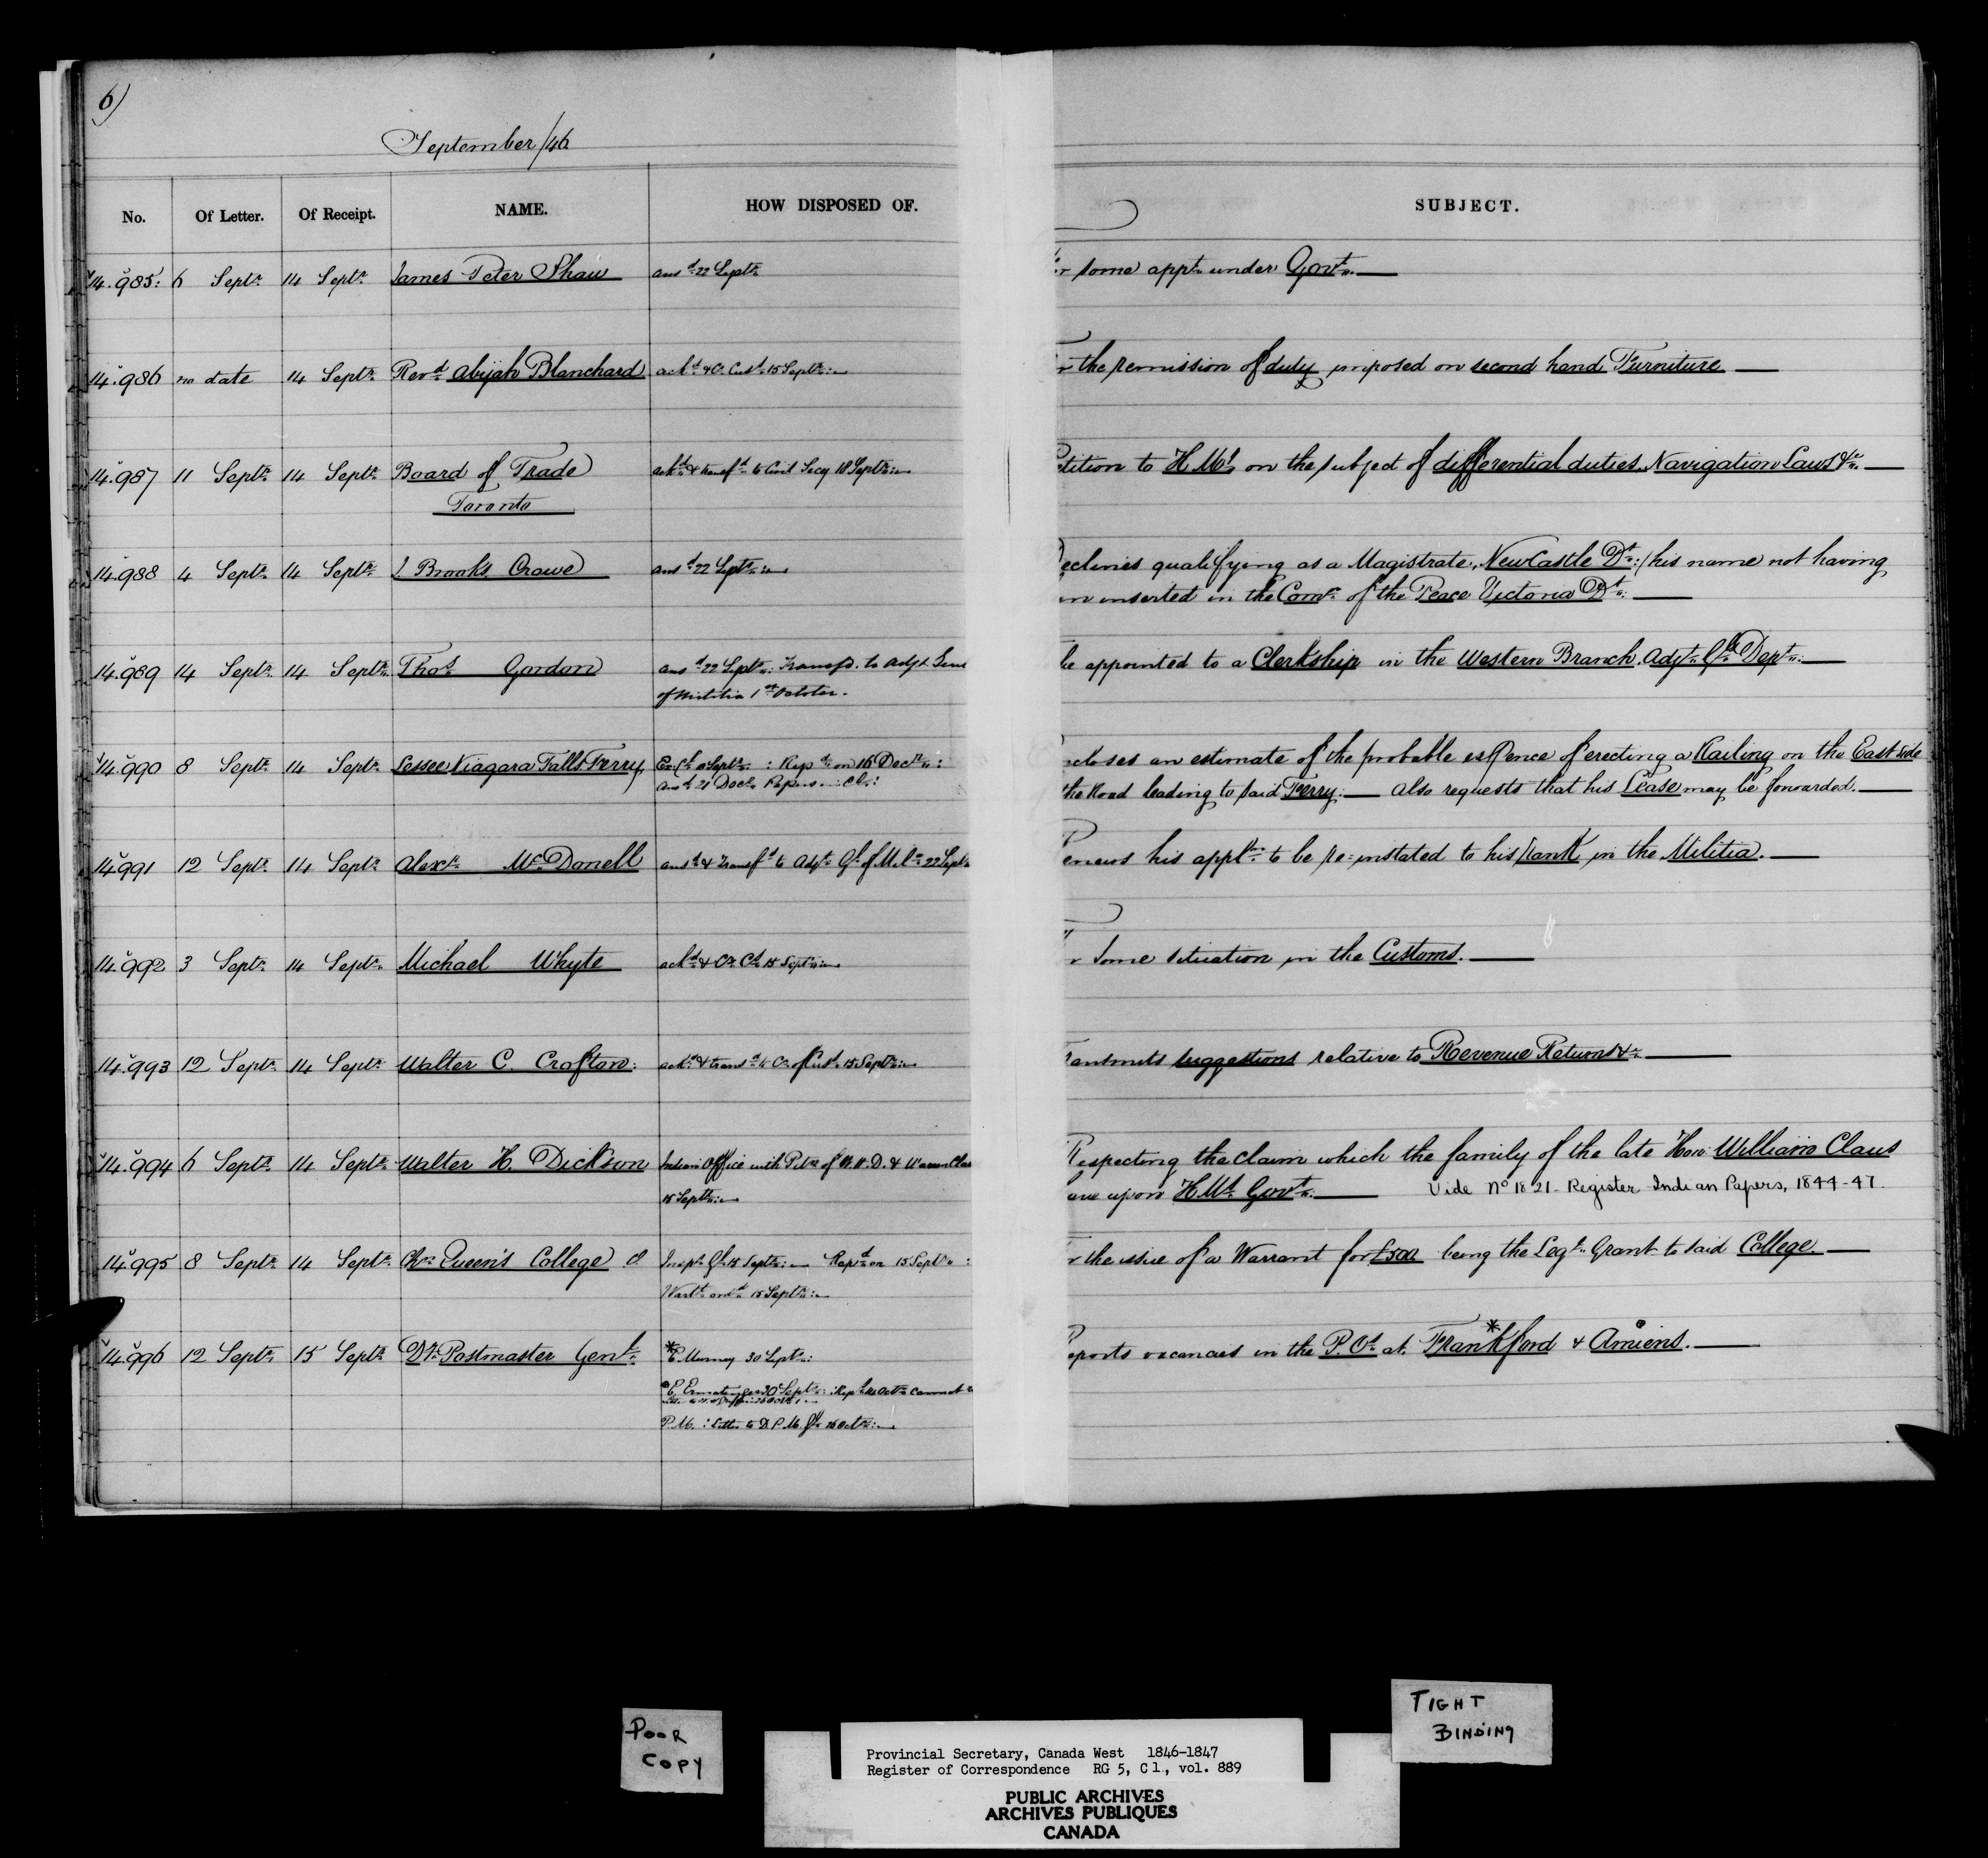 6)
September/46
No. Of Letter. Of Receipt. NAME. HOW DISPOSED OF. SUBJECT.
14.985 6 Septr 14 Septr James Peter Shaw ansd 22 Septr r some appt under Govt
14.986 no date 14 Septr Revd Abijah Blanchard ackd & Cr. Cusd 15 Septr r the remission of duty imposed on second hand Furniture
14.987 11 Septr 14 Septr Board of Trade ackd & transfd to Civil Secy 18 Septr etition to H.Mt on the subject of differential duties, Navigation Laws &c
Toronto
14.988 4 Septr 14 Septr J. Brooks Crowe ansd 22 Septr eclines qualifying as a Magistrate, NewCastle Dt: / his name not having
en inserted in the Comn of the Peace Victoria Dt
14.989 14 Septr 14 Septr Thos Gordon ansd 22 Septr: Transfd. to Adjt. Genl be appointed to a Clerkship in the Western Branch, Adjt Gls Dept
of Militia 1st October.
14.990 8 Septr 14 Septr Lessee Niagara Falls Ferry Septr : Repd on 16 Decr : closes an estimate of the probable expence of erecting a Railing on the East side
Ansd 21 Decr Papers the Road leading to said Ferry: also requests that his Lease may be forwarded.
14.991 12 Septr 14 Septr Alexr McDonell ansd & Transfd to Adjt Gl of Mila 22 Septr enews his appln to be re-instated to his rank in the Militia.
14.992 3 Septr 14 Septr Michael Whyte ackd & Cr. Cd 15 Septr r some situation in the Customs.
14.993 12 Septr 14 Septr Walter C. Crofton ackd & transd to Cr of Cusd 15 Septr ansmits suggestions relative to Revenue Returns &c
14.994 6 Septr 14 Septr Walter H. Dickson Indian Office with Petn of W.H.D. & Warren Claus Respecting the claim which the family of the late Hon: William Claus
15 Septr ave upon H.Mt Govt Vide No 1821 - Register Indian Papers, 1844-47.
14.995 8 Septr 14 Septr Queen's College Inspr Gl 15 Septr Repd on 15 Septr : r the issue of a Warrant for £500 being the Legt Grant to said College
Warrt ordd 15 Septr
14.996 12 Septr 15 Septr Dy Postmaster Genl * E Murney 30 Septr: eports vacancies in the P. Os at Frank*ford & Amiens.
E. Ermatinger 30 Septr: Repd Octr cannot
P.M. : Letter to D.P.M. Gl 16 Octr
POOR
COPY
TIGHT
BINDING
Provincial Secretary, Canada West 1846-1847
Register of Correspondence RG 5, C 1., vol. 889
PUBLIC ARCHIVES
ARCHIVES PUBLIQUES
CANADA